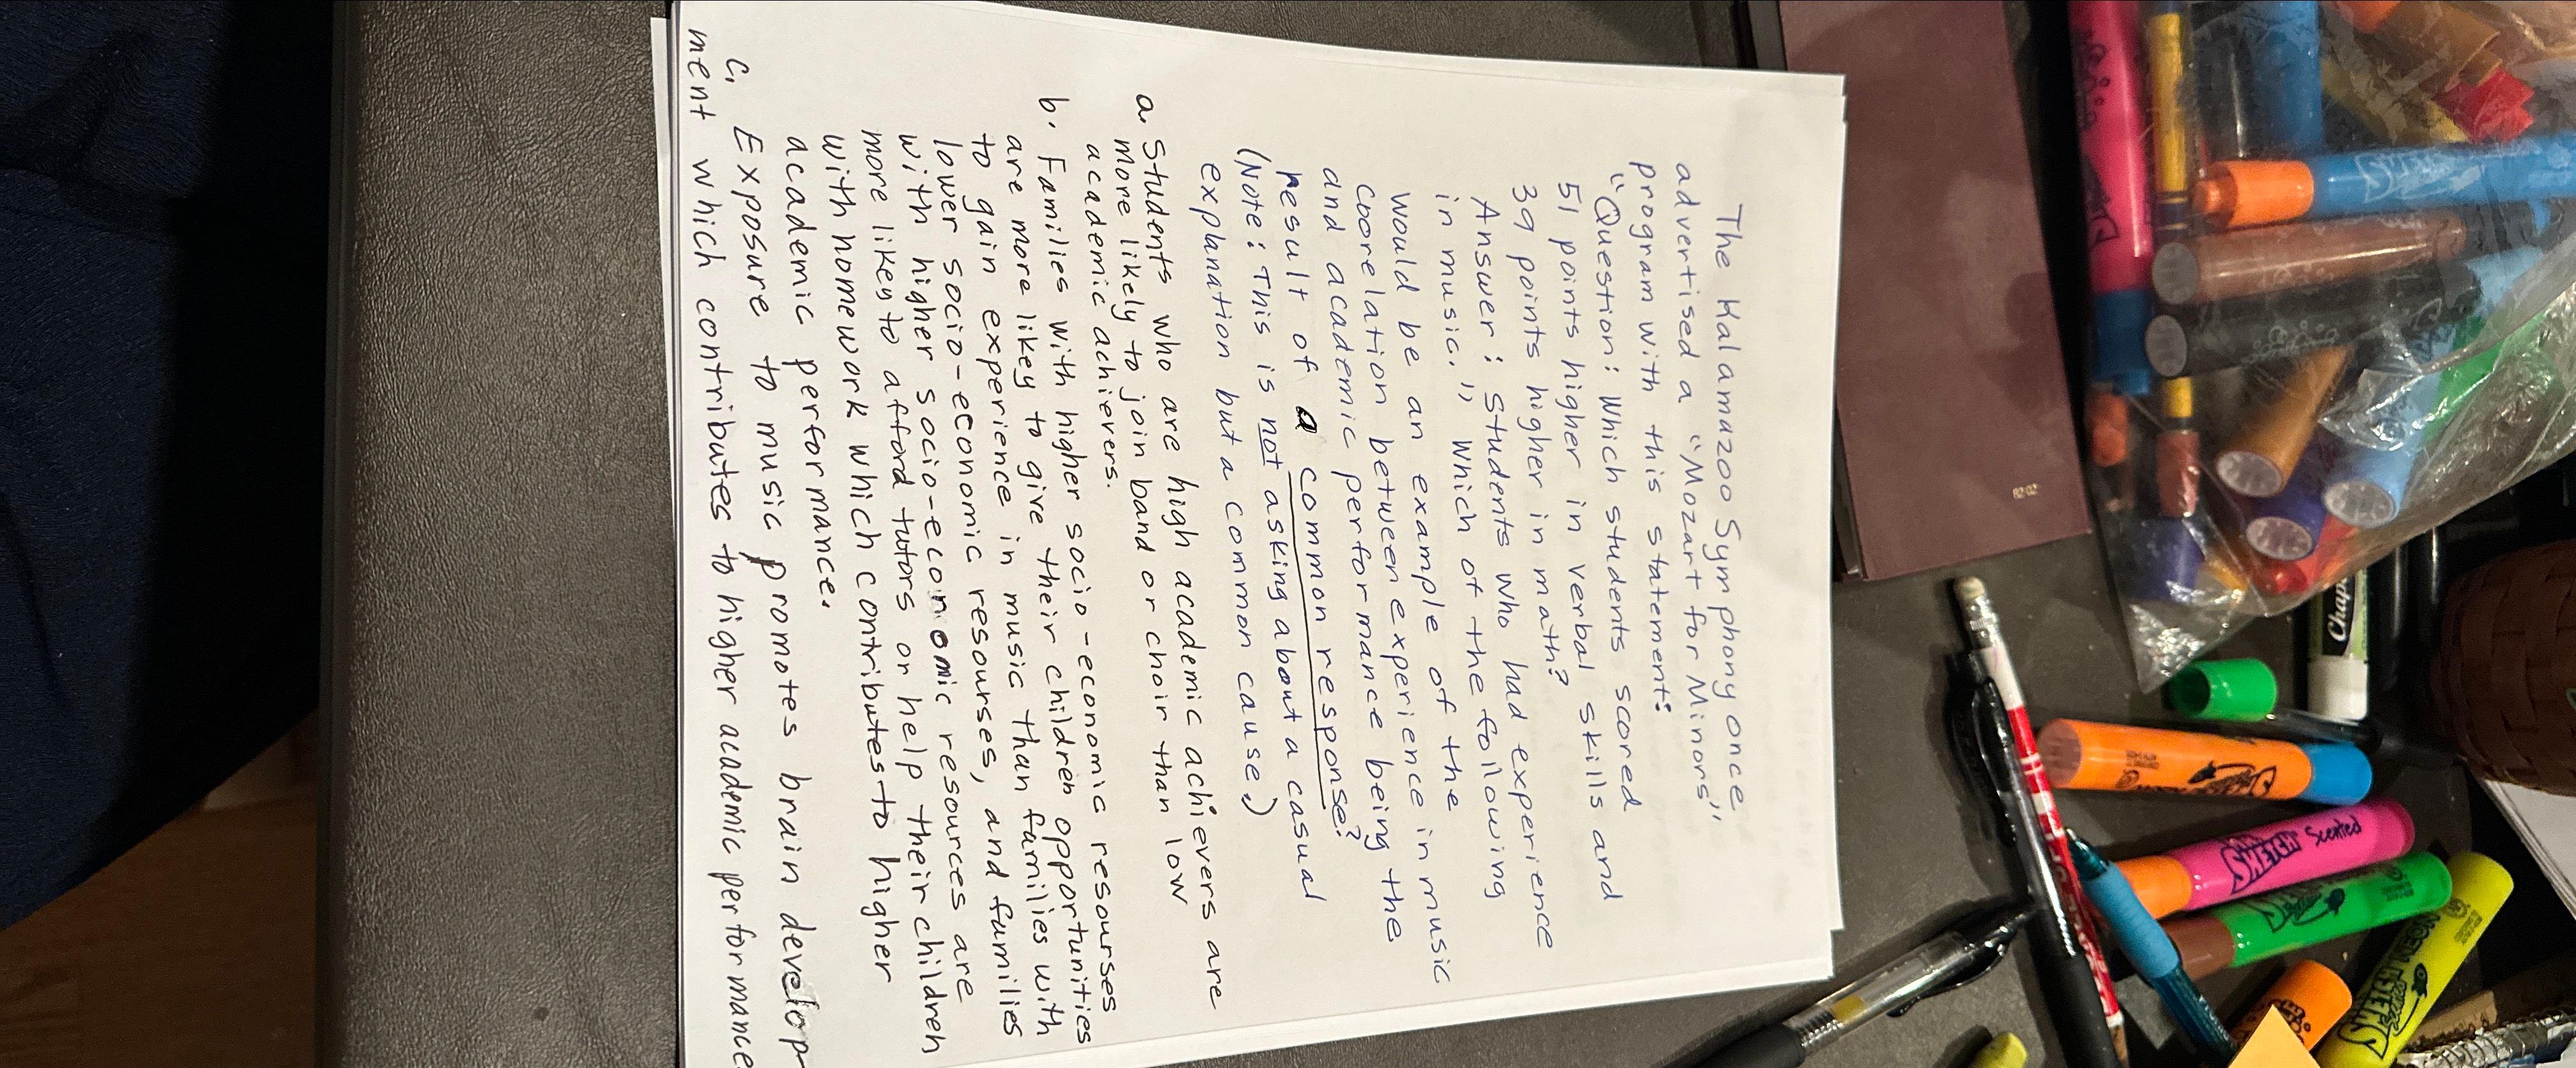 The Kalamazoo Symphony once
advertised a "Mozart for Minors"
program with this statement:
"Question: Which students scored
51 points higher in verbal skills and
39 points higher in math?
Answer: Students who had experience
in music." Which of the following
would be an example of the
coorelation between experience in music
and academic performance being the
result of a common response?
(Note: This is not asking about a casual
explanation but a common cause.)
a. Students who are high academic achievers are
more likely to join band or choir than low
academic achievers.
b. Families with higher socio-economic resourses
are more likey to give their children opportunities
to gain experience in music than families with
lower socio-economic resourses, and families
with higher socio-econ omic resources are
more likey to afford tutors or help their children
with homework which contributes to higher
academic performance.
c. Exposure to music promotes brain develop-
ment which contributes to higher academic performance
Chap
SKETCH Scented